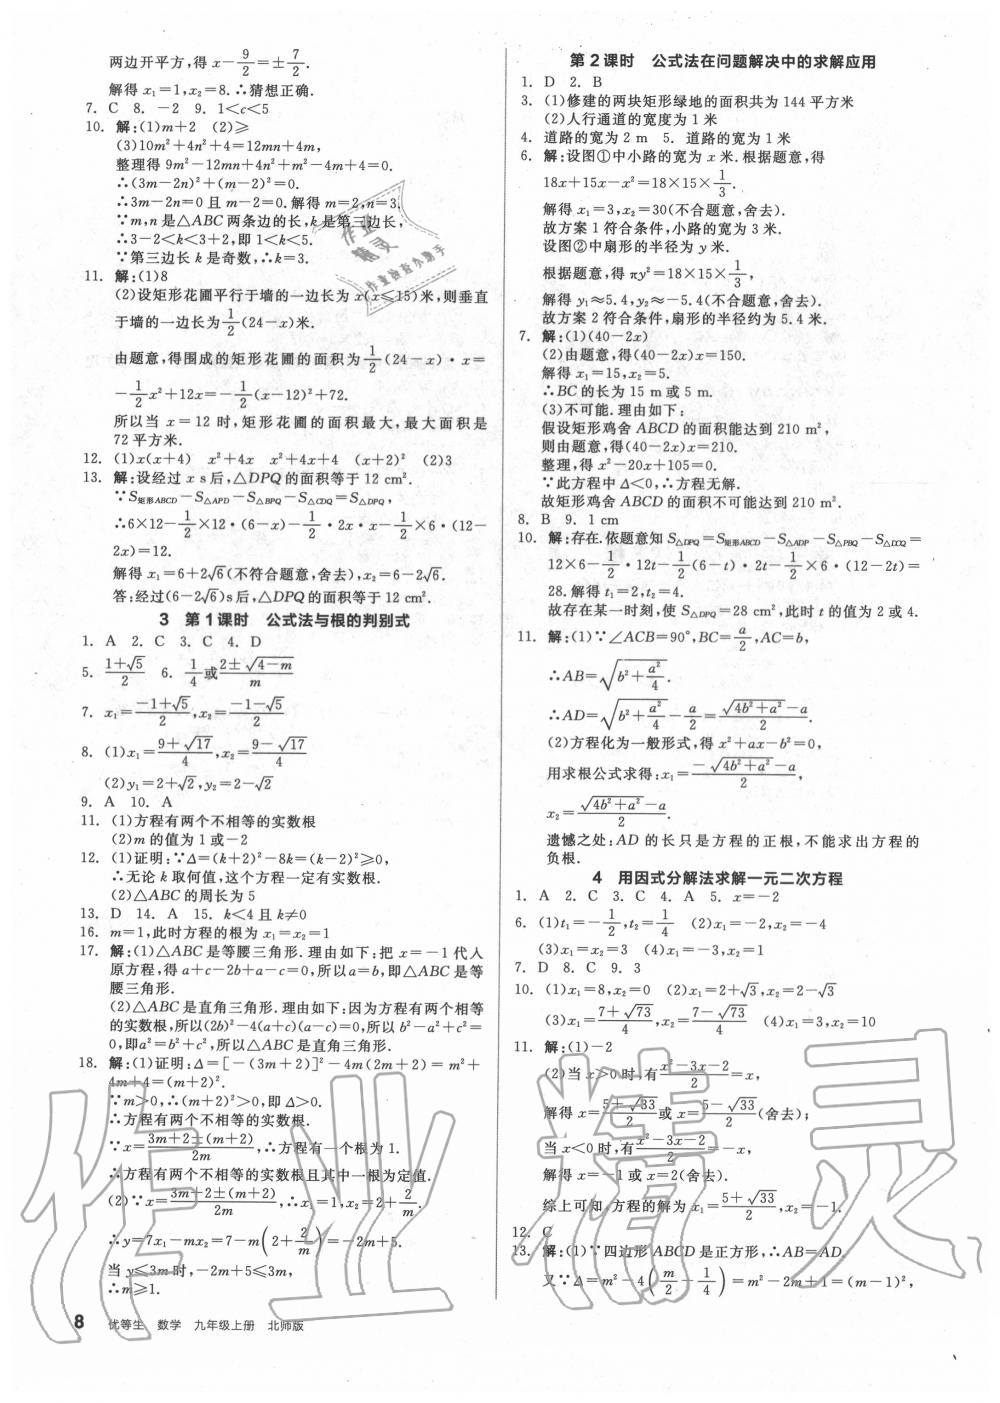 两边开平方,得 x－9/2＝±7/2.
解得 x₁＝1,x₂＝8.∴猜想正确.
7. C 8. －2 9. 1＜c＜5
10. 解:(1)m＋2 (2)≥
(3)10m²＋4n²＋4＝12mn＋4m,
整理得 9m²－12mn＋4n²＋m²－4m＋4＝0.
∴(3m－2n)²＋(m－2)²＝0.
∴3m－2n＝0且 m－2＝0.解得 m＝2,n＝3.
∵m,n是△ABC 两条边的长,k是第三边长,
∴3－2＜k＜3＋2,即1＜k＜5.
∵第三边长 k 是奇数,∴k＝3.
11. 解:(1)8
(2)设矩形花圃平行于墙的一边长为 x(x≤15)米,则垂直
于墙的一边长为1/2(24－x)米.
由题意,得围成的矩形花圃的面积为1/2(24－x)·x＝
－1/2x²＋12x＝－1/2(x－12)²＋72.
所以当 x＝12 时,矩形花圃的面积最大,最大面积为
72 平方米.
12. (1)x(x＋4) x²＋4x x²＋4x＋4 (x＋2)² (2)3
13. 解:设经过 x s后,△DPQ的面积等于 12 cm².
∵S矩形ABCD－S△APD－S△BPQ－S△CDQ＝S△DPQ,
∴6×12－1/2×12·(6－x)－1/2·2x·x－1/2×6·(12－
2x)＝12.
解得 x₁＝6＋2√6(不符合题意,舍去),x₂＝6－2√6.
答:经过(6－2√6)s后,△DPQ的面积等于 12 cm².
3 第1课时 公式法与根的判别式
1. A 2. C 3. C 4. D
5. (1＋√5)/2 6. 1/4或(2±√(4－m))/m
7. x₁＝(－1＋√5)/2,x₂＝(－1－√5)/2
8. (1)x₁＝(9＋√17)/4,x₂＝(9－√17)/4
(2)y₁＝2＋√2,y₂＝2－√2
9. A 10. A
11. (1)方程有两个不相等的实数根
(2)m 的值为 1 或－2
12. (1)证明:∵Δ＝(k＋2)²－8k＝(k－2)²≥0,
∴无论 k 取何值,这个方程一定有实数根.
(2)△ABC 的周长为 5
13. D 14. A 15. k＜4 且 k≠0
16. m＝1,此时方程的根为 x₁＝x₂＝1
17. 解:(1)△ABC 是等腰三角形.理由如下:把 x＝－1 代入
原方程,得 a＋c－2b＋a－c＝0,所以 a＝b,即△ABC 是等
腰三角形.
(2)△ABC 是直角三角形.理由如下:因为方程有两个相等
的实数根,所以(2b)²－4(a＋c)(a－c)＝0,所以 b²－a²＋c²＝
0,即a²＝b²＋c²,所以△ABC 是直角三角形.
18. 解:(1)证明:Δ＝[－(3m＋2)]²－4m(2m＋2)＝m²＋
4m＋4＝(m＋2)².
∵m＞0,∴(m＋2)²＞0,即 Δ＞0.
∴方程有两个不相等的实数根.
∵x＝(3m＋2±(m＋2))/2m,∴方程有一个根为 1.
∴方程有两个不相等的实数根且其中一根为定值.
(2)∵x＝(3m＋2±(m＋2))/2m,∴x₁＝1,x₂＝2＋2/m.
∴y＝7x₁－mx₂＝7－m(2＋2/m)＝－2m＋5.
当 y≤3m 时,－2m＋5≤3m.
∴m≥1.
8 优等生 数学 九年级上册 北师版
第2课时 公式法在问题解决中的求解应用
1. D 2. B
3. (1)修建的两块矩形绿地的面积共为 144 平方米
(2)人行通道的宽度为 1 米
4. 道路的宽为 2 m 5. 道路的宽为 1 米
6. 解:设图①中小路的宽为 x 米.根据题意,得
18x＋15x－x²＝18×15×1/3.
解得 x₁＝3,x₂＝30(不合题意,舍去).
故方案 1 符合条件,小路的宽为 3 米.
设图②中扇形的半径为 y 米.
根据题意,得 πy²＝18×15×1/3,
解得 y₁≈5.4,y₂≈－5.4(不合题意,舍去).
故方案 2 符合条件,扇形的半径约为 5.4 米.
7. 解:(1)(40－2x)
(2)由题意,得(40－2x)x＝150.
解得 x₁＝15,x₂＝5.
∴BC 的长为 15 m 或 5 m.
(3)不可能.理由如下:
假设矩形鸡舍 ABCD 的面积能达到 210 m²,
则由题意,得(40－2x)x＝210.
整理,得 x²－20x＋105＝0.
∵此方程中 Δ＜0,∴方程无解.
故矩形鸡舍 ABCD 的面积不可能达到 210 m².
8. B 9. 1 cm
10. 解:存在.依题意知 S△DPQ＝S矩形ABCD－S△ADP－S△PBQ－S△DCQ＝
12×6－1/2·12t－1/2(6－t)·2t－1/2×6·(12－2t)＝
28.解得 t₁＝2,t₂＝4.
故存在某一时刻,使 S△DPQ＝28 cm²,此时 t 的值为 2 或 4.
11. 解:(1)∵∠ACB＝90°,BC＝a/2,AC＝b,
∴AB＝√(b²＋a²/4).
∴AD＝√(b²＋a²/4)－a/2＝(√(4b²＋a²)－a)/2.
(2)方程化为一般形式,得 x²＋ax－b²＝0,
用求根公式求得:x₁＝(－√(4b²＋a²)－a)/2,
x₂＝(√(4b²＋a²)－a)/2.
遗憾之处:AD 的长只是方程的正根,不能求出方程的
负根.
4 用因式分解法求解一元二次方程
1. A 2. C 3. C 4. A 5. x＝－2
6. (1)t₁＝－1/2,t₂＝1/4 (2)x₁＝－2,x₂＝－4
(3)x₁＝x₂＝3 (4)x₁＝－3,x₂＝1
7. D 8. C 9. 3
10. (1)x₁＝8,x₂＝0 (2)x₁＝2＋√3,x₂＝2－√3
(3)x₁＝(7＋√73)/4,x₂＝(7－√73)/4 (4)x₁＝3,x₂＝10
11. 解:(1)－2
(2)当 x＞0时,有(x²－3x－2)/2＝x,
解得 x＝(5＋√33)/2或 x＝(5－√33)/2(舍去);
当 x＜0时,有(x²－3x－2)/2＝－x,
解得 x＝－1或 x＝2(舍去).
综上可知,方程的解为 x₁＝(5＋√33)/2,x₂＝－1.
12. C
13. 解:(1)∵四边形 ABCD 是正方形,∴AB＝AD.
又∵Δ＝m²－4(m/2－1/4)＝m²－2m＋1＝(m－1)²,
作业精灵
作业
精灵
作业检查小助手